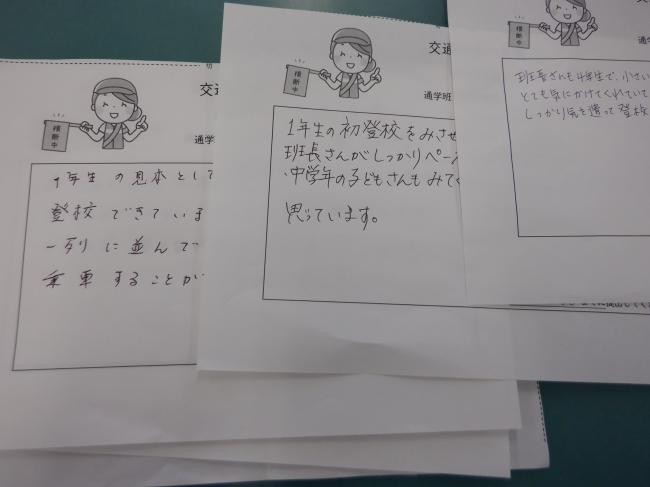 交
通学
横断中
1年生の見本として
登校できていま
一列に並んで
乗車することが
交通
通学班
横断中
1年生の初登校をみさせ
班長さんがしっかりペー
中学年の子どもさんもみて
思っています。
横断中
班長さんも4年生で、小さい
とても気にかけてくれていて
しっかり気を遣って登校